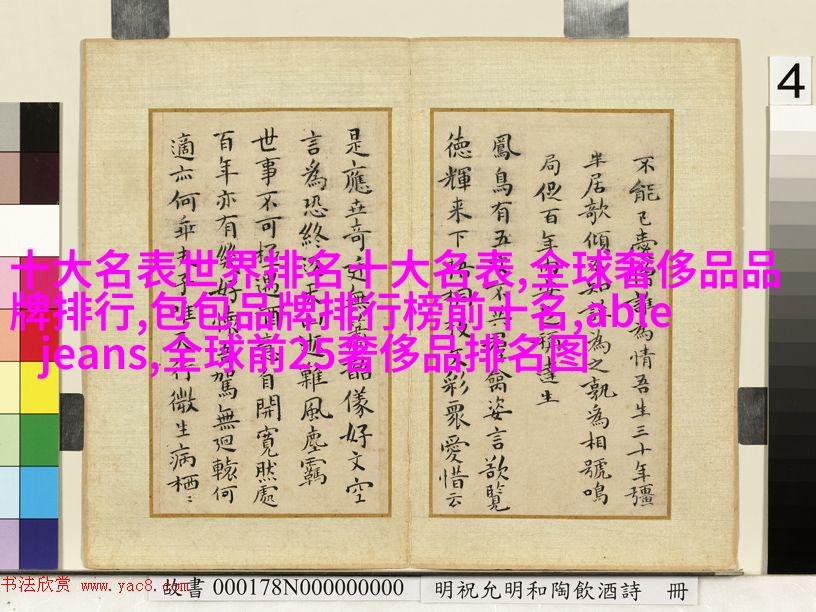 4
不能已為情吾生三十年彊
半居歌傾之孰為相號鳴
局促百年達生
鳳鳥有五不共禽姿言欲覽
徳輝来下梧桐枝文彩眾愛惜云
是應世奇無儀好文空
言為恐終逝難風塵羈
世事不可擇遇酒自開寬然處
百年亦有終好懷駕無迴轅何
適亦何乖夫子唯行微生病栖〻
十大名表世界排名十大名表,全球奢侈品品
牌排行,包包品牌排行榜前十名,able
jeans,全球前25奢侈品排名图
书法欣赏 www.yac8.com
故書 000178N000000000
明祝允明和陶飲酒詩 冊